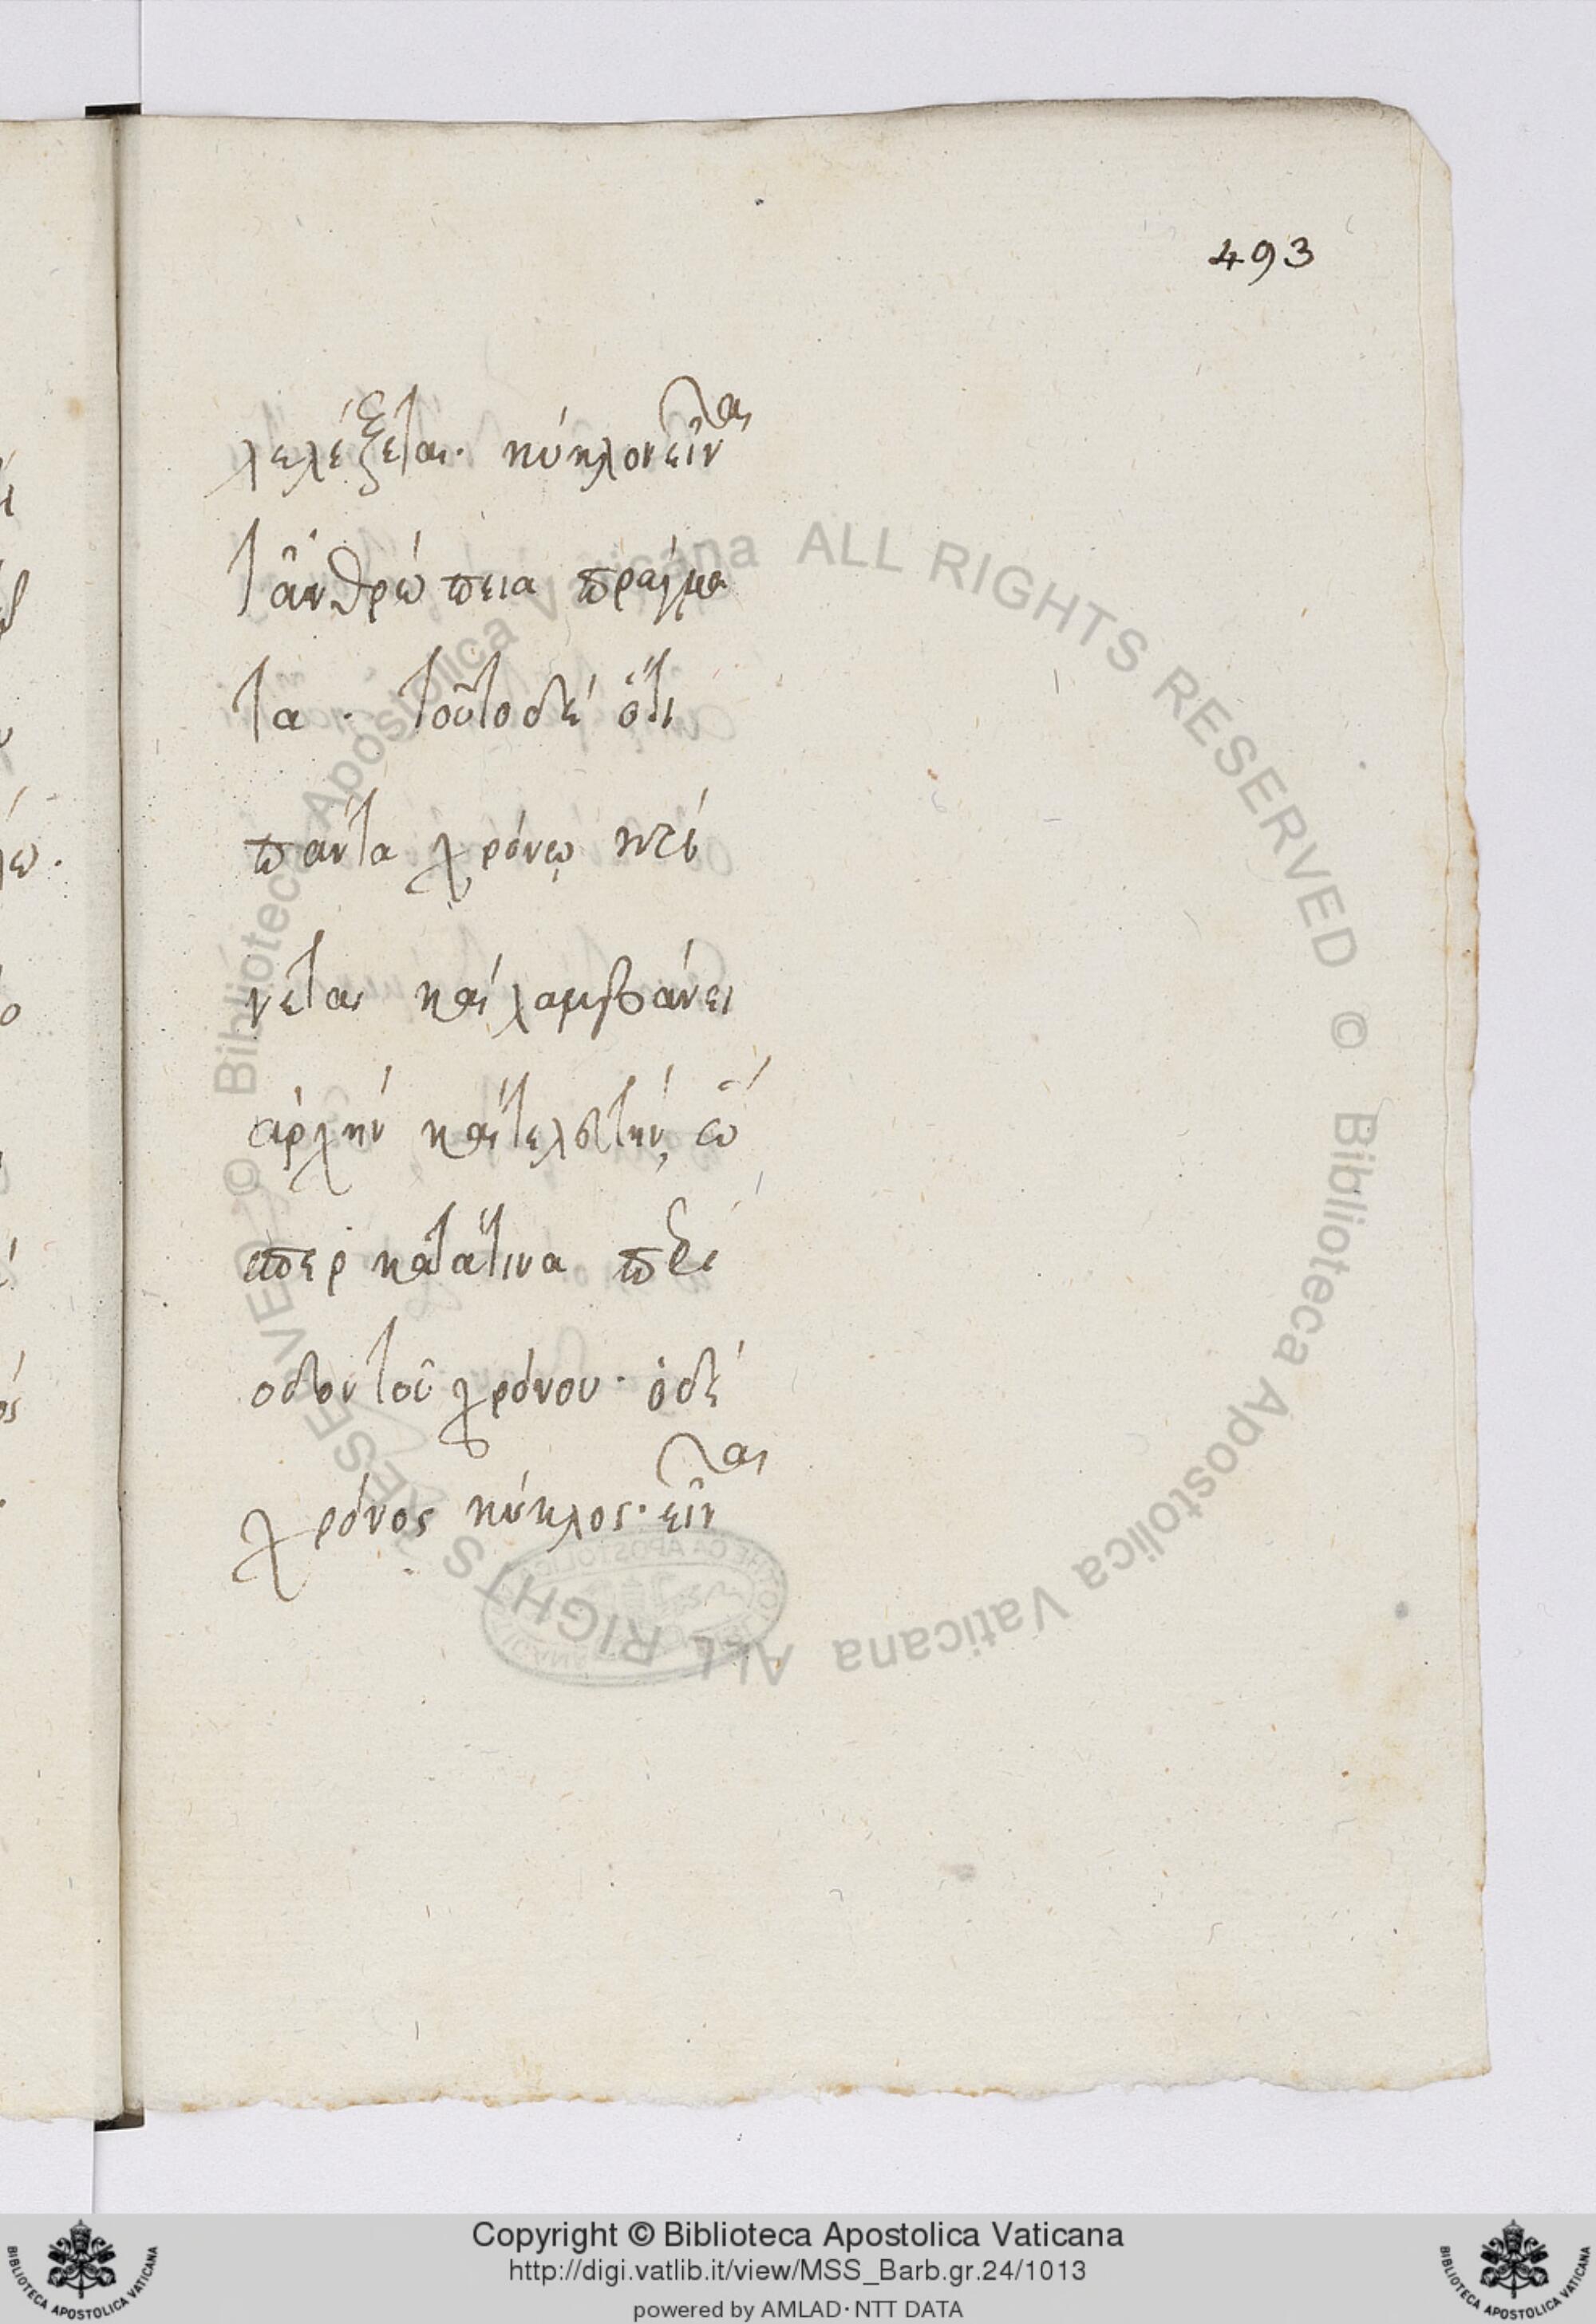 493
λελέξεται· κύκλον εἶναι
τἀνθρώπεια πράγμα
τα· τοῦτο δὲ ὅτι
πάντα χρόνῳ κρί
νεται καὶ λαμβάνει
ἀρχὴν καὶ τελευτήν, ὥ
σπερ κατά τινα περί
οδον τοῦ χρόνου· ὁ δὲ
χρόνος κύκλος· εἶναι
© Biblioteca Apostolica Vaticana ALL RIGHTS RESERVED © Biblioteca Apostolica Vaticana ALL RIGHTS RESERVED
Copyright © Biblioteca Apostolica Vaticana
http://digi.vatlib.it/view/MSS_Barb.gr.24/1013
powered by AMLAD·NTT DATA
BIBLIOTECA APOSTOLICA VATICANA
BIBLIOTECA APOSTOLICA VATICANA